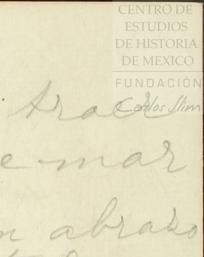 CENTRO DE
ESTUDIOS
DE HISTORIA
DE MEXICO
FUNDACIÓN
Carlos Slim
traer
e mar
n abrazo